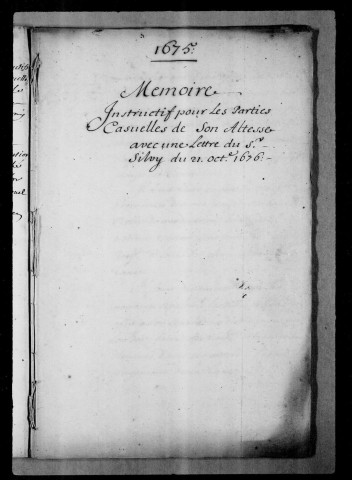 1675.
Memoire
Instructif pour Les Parties
Casuelles de Son Altesse
avec une Lettre du S.r
Silvy du 21. oct.e 1676.